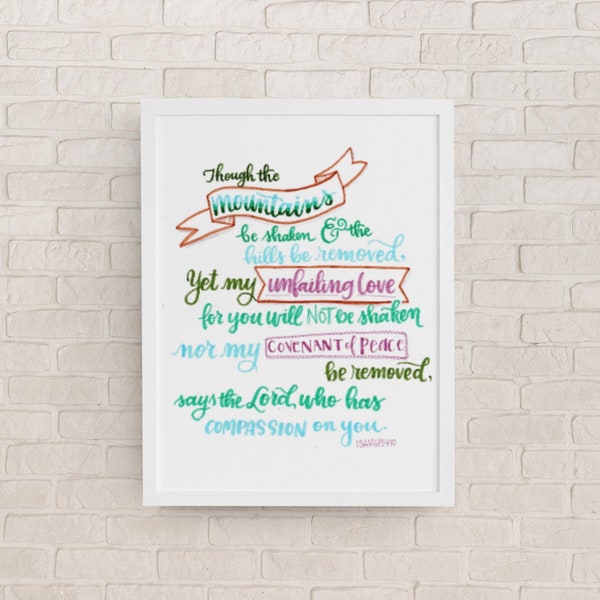 Though the
mountains
be shaken & the
hills be removed,
Yet my unfailing love
for you will NOT be shaken
nor my COVENANT of PEACE
be removed,
says the Lord, who has
COMPASSION on you.
ISAIAH 54:10